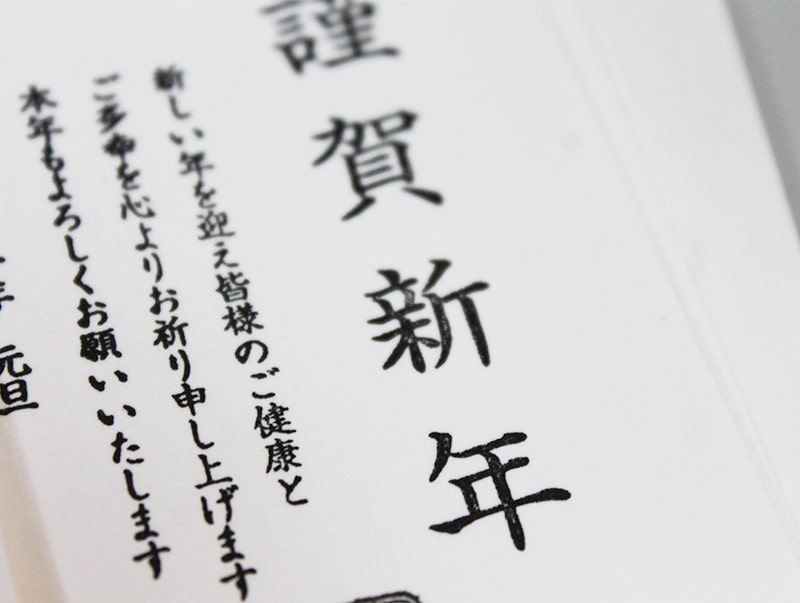 謹賀新年
新しい年を迎え皆様のご健康と
ご多幸を心よりお祈り申し上げます
本年もよろしくお願いいたします
年 元旦